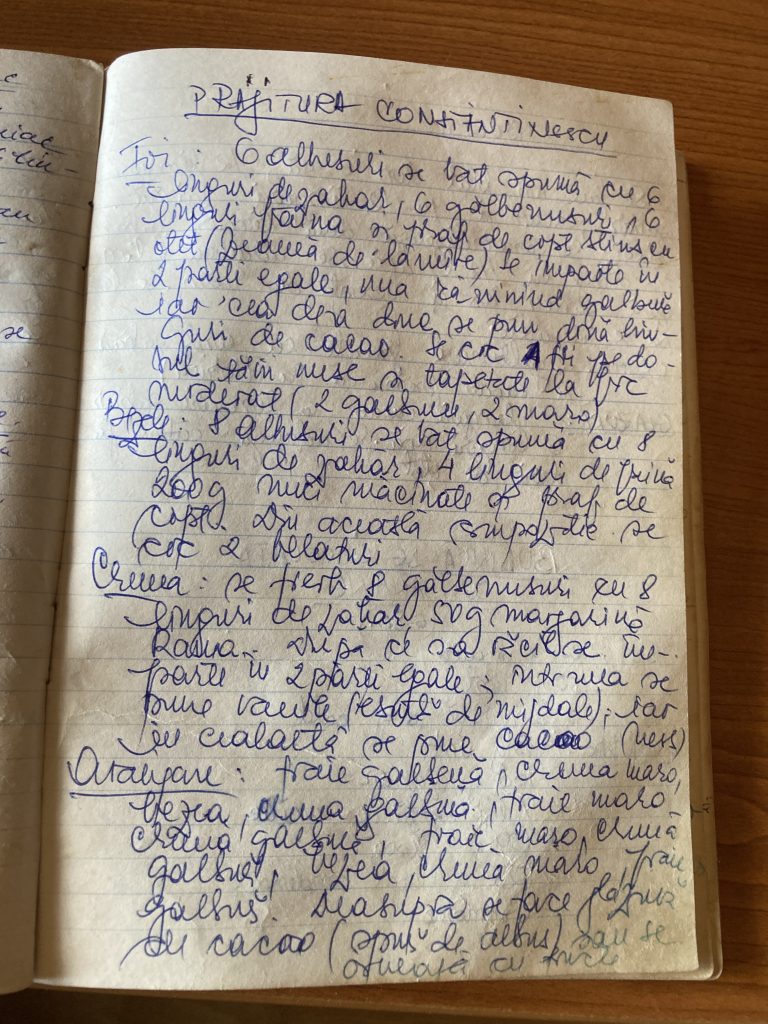 c
PRĂJITURA CONSTANTINESCU
Foi: 6 albușuri se bat spumă cu 6
linguri de zahăr, 6 gălbenușuri, 6
linguri făină și praf de copt stins cu
oțet (zeamă de lămîie) Se împarte în
2 părți egale, una rămînînd galbenă
iar cea de a doua se pun două lin-
guri de cacao. Se coc 4 foi pe do-
sul tăvii unse și tapetate la foc
moderat (2 galbene, 2 maro)
Bezele: 8 albușuri se bat spumă cu 8
linguri de zahăr, 4 linguri de făină
200g nuci măcinate și praf de
copt. Din această compoziție se
coc 2 blaturi
Crema: se fierb 8 gălbenușuri cu 8
linguri de zahăr, 50g margarină
Rama. După ce s-a răcit se îm-
parte în 2 părți egale; într-una se
pune vanilie (esență de migdale); iar
în cealaltă se pune cacao (ness)
Aranjare: foaie galbenă, crema maro,
bezea, crema galbenă, foaie maro
cremă galbenă, foaie maro, cremă
galbenă, bezea, cremă maro, foaie
galbenă. Deasupra se face glazură
de cacao (spumă de albuș) sau se
ornează cu fructe
se